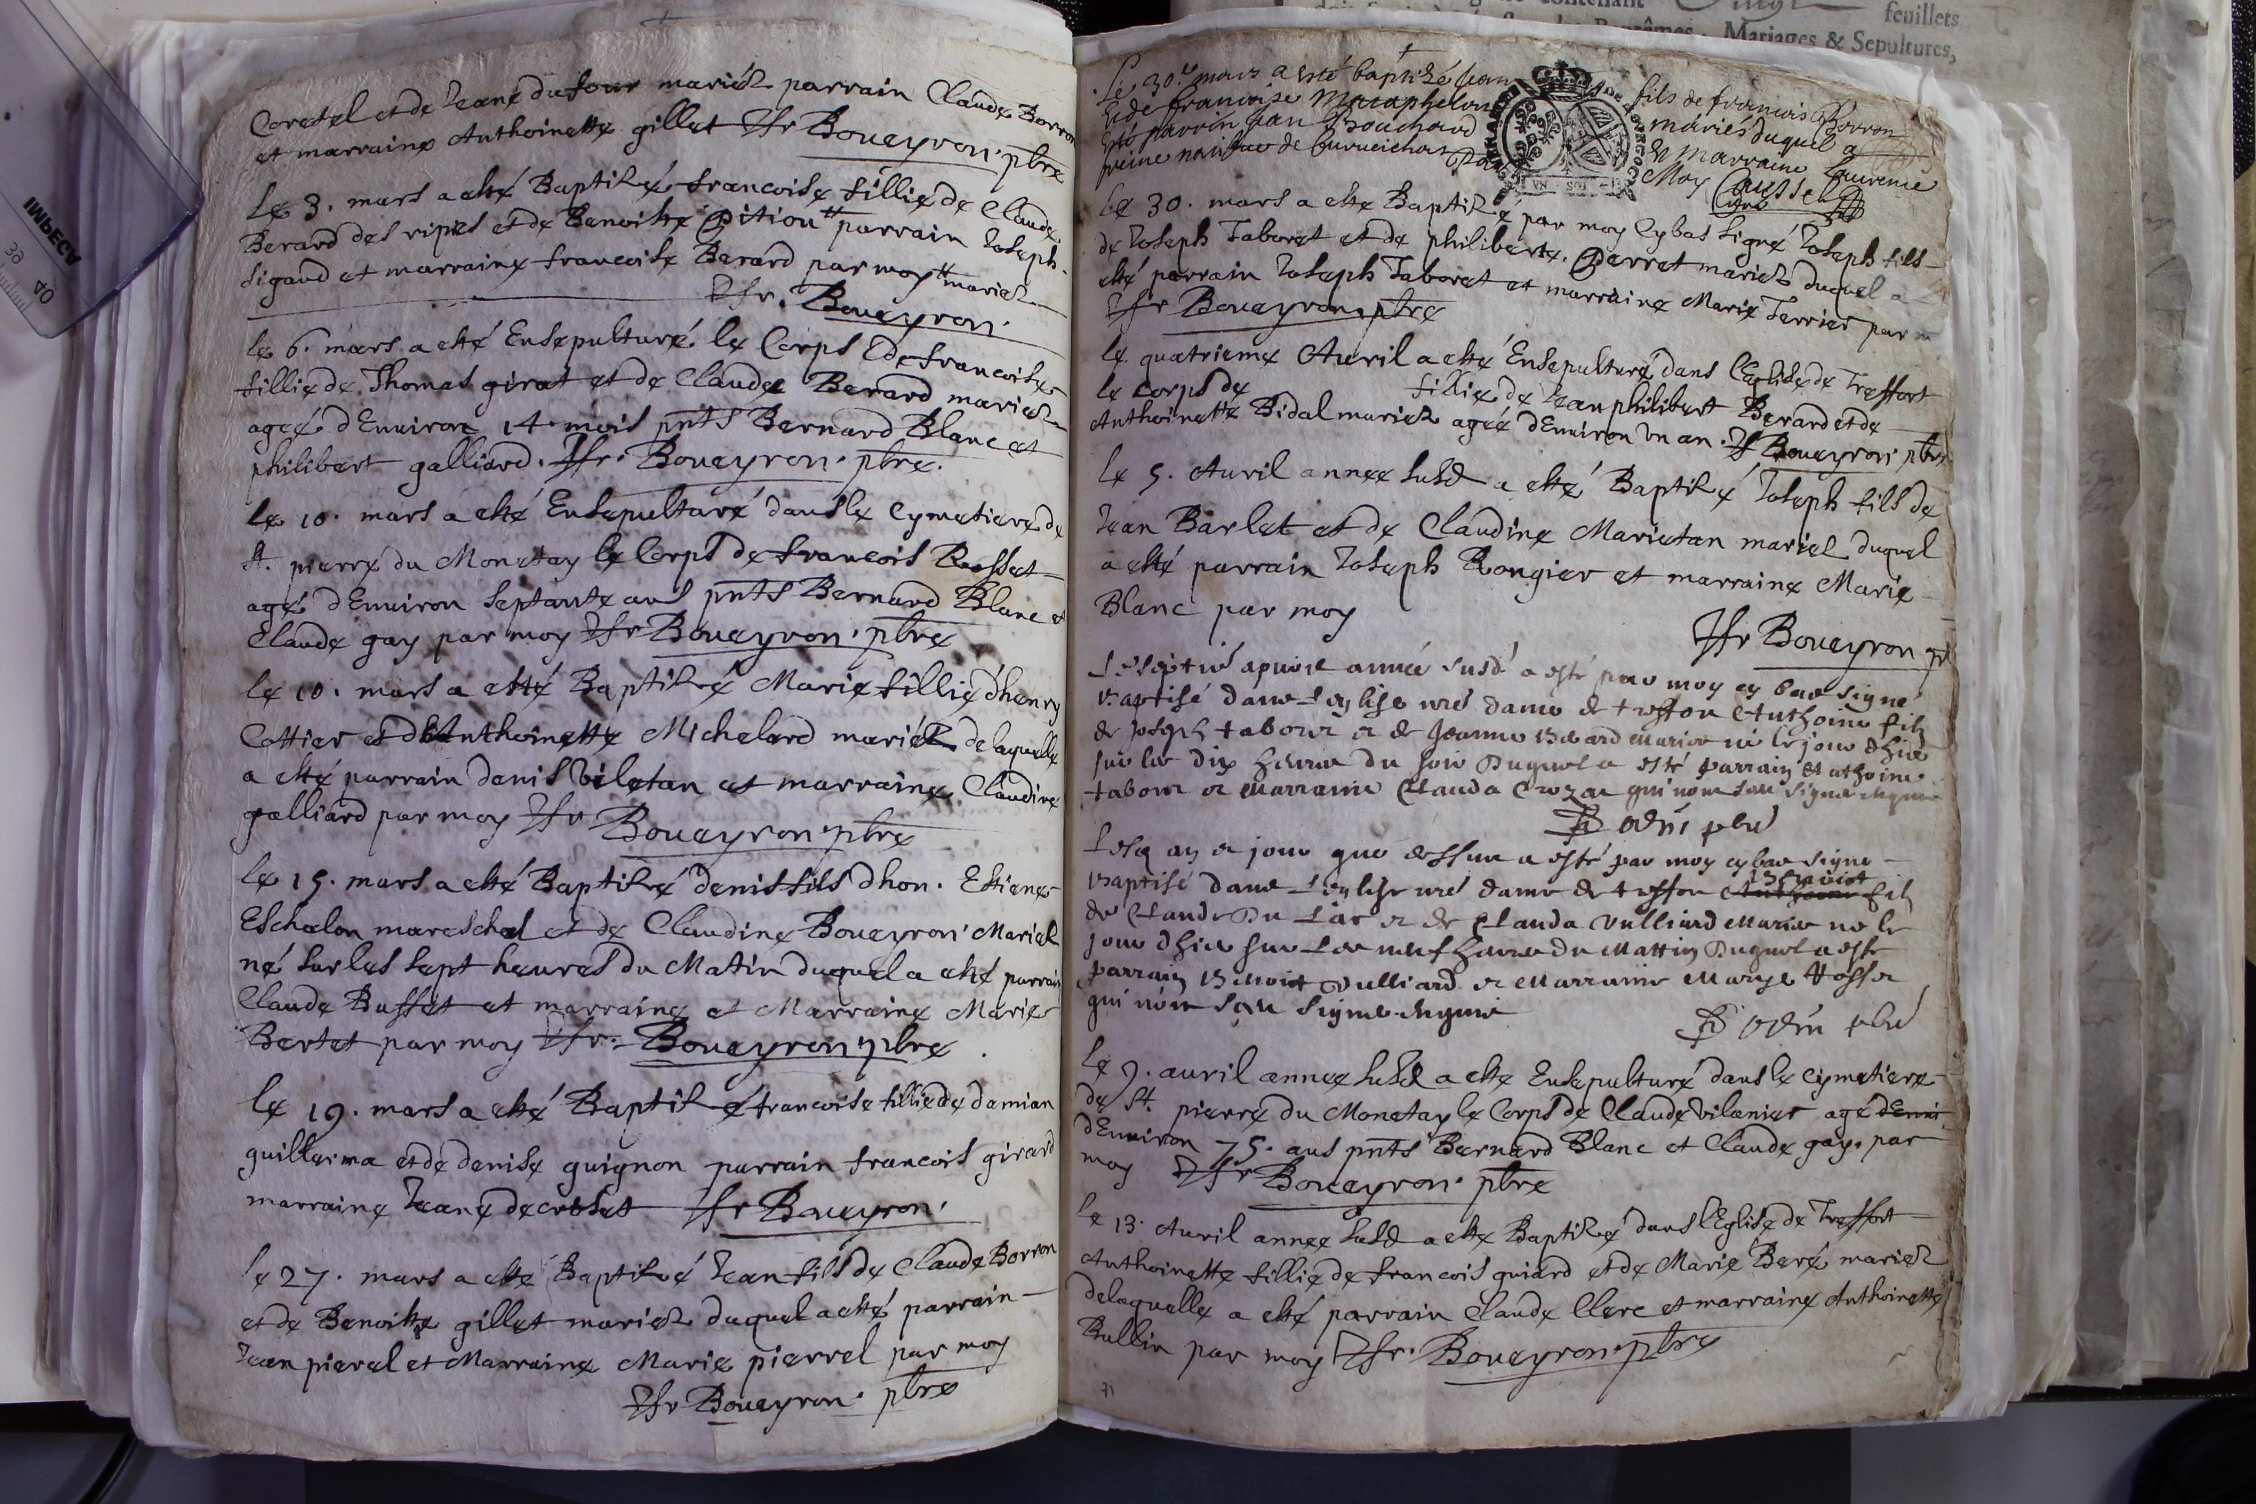 Coretel et de Jeane dufour mariéz parrain Claude Borron
et marraine Anthoinette gillet Jfr Boueyron. pbre
le 3. mars a esté Baptizé francoise fillie de Claude
Berard des ripes et de Benoitte Pition parrain Joseph
Sigaud et marraine francoise Berard par moy mariez
Jfr. Boueyron.
le 6. mars a esté Ensepulturé le Corps de francoise
fillie de Thomas girat et de Claude Berard mariez
ageé d'Enuiron 14. mois pnts Bernard Blanc et
philibert galliard. Jfr. Boueyron. pbre.
le 10. mars a esté Ensepulturé dans le Cymetiere de
St. pierre du Monetay le Corps de francois Rosset
agé d'Enuiron septante ans pnts Bernard Blanc et
Claude gay par moy Jfr Boueyron. pbre
le 10. mars a esté Baptizé Marie fillie d'henry
Cottier et d'Anthoinette Michelard mariéz de laquelle
a esté parrain denis viletan et marraine Claudine
galliard par moy Jfr Boueyron. pbre
le 15. mars a esté Baptizé denis fils d'hon. Estiene
Eschalon mareschal et de Claudine Boueyron Mariez
né sur les sept heures du Matin duquel a esté parrain
Claude Buffet et marraine et Marraine Marie
Bertet par moy Jfr. Boueyron. pbre.
le 19. mars a esté Baptizé francoise fillie de damian
guillerma et de denise guignon parrain francois girard
marraine Jeane decroset Jfr Boueyron.
le 27. mars a esté Baptizé Jean fils de Claude Borron
et de Benoitte gillet mariez duquel a esté parrain
Jean pierel et Marraine Marie pierrel par moy
Jfr Boueyron. pbre
contenant feuillets
Baptêmes, Mariages & Sepultures,
Le 30e mars a esté baptizé Jean fils de francois Borron
et de francoise mariés duquel a
esté parrin Jean Bouchard et marraine Laurence
moy
le 30. mars a este Baptizé par moy Cy bas signé Joseph fils
de Joseph Taboret et de philiberte Perret mariez duquel a
esté parrain Joseph Taboret et marraine Marie Terrier par
Jfr Boueyron. pbre
le quatrieme Auril a esté Ensepulturé dans l'Eglise de Treffort
le corps de fillie de Jean philibert Berard et de
Anthoinette Bidal mariez ageé d'Enuiron un an. Jf Boueyron pbre
le 5. Auril annee susd a esté Baptizé Joseph fils de
Jean Barlet et de Claudine Marietan mariez duquel
a esté parrain Joseph Rongier et marraine Marie
Blanc par moy
Jfr Boueyron
Le septie apuril année susd a esté par moy cy bas signé
baptisé dans l'eglise nre dame de treffort Anthoine filz
de Joseph tabouret et de Jeanne Berard mariés né le jour d'hier
sur les dix heures du soir duquel a esté parrain Anthoine
tabouret et marraine Clauda Crozat qui n'ont sceu signe enquis
pbre
Lesd an et jour que dessus a esté par moy cy bas signe
baptisé dans l'eglise nre dame de treffort Benoist filz
de Claude Du Lac et de Clauda Vulliard mariés ne le
jour d'hier sur les neuf heures du mattin duquel a este
parrain Benoist Vulliard et marraine Marye
qui n'ont sceu signe enquis
pbre
le 9. auril annee susd a esté Ensepulturé dans le Cymetiere
de St. pierre du Monetay le Corps de Claude Vilanier agé
d'Enuiron 75. ans pnts Bernard Blanc et Claude gay. par
moy Jfr Boueyron. pbre
le 13. Auril annee susd a esté Baptizé dans l'Eglise de Treffort
Anthoinette fillie de francois guiard et de Marie Beré mariez
delaquelle a esté parrain Claude Clerc et marraine Anthoinette
Bullin par moy Jfr. Boueyron. pbre
71